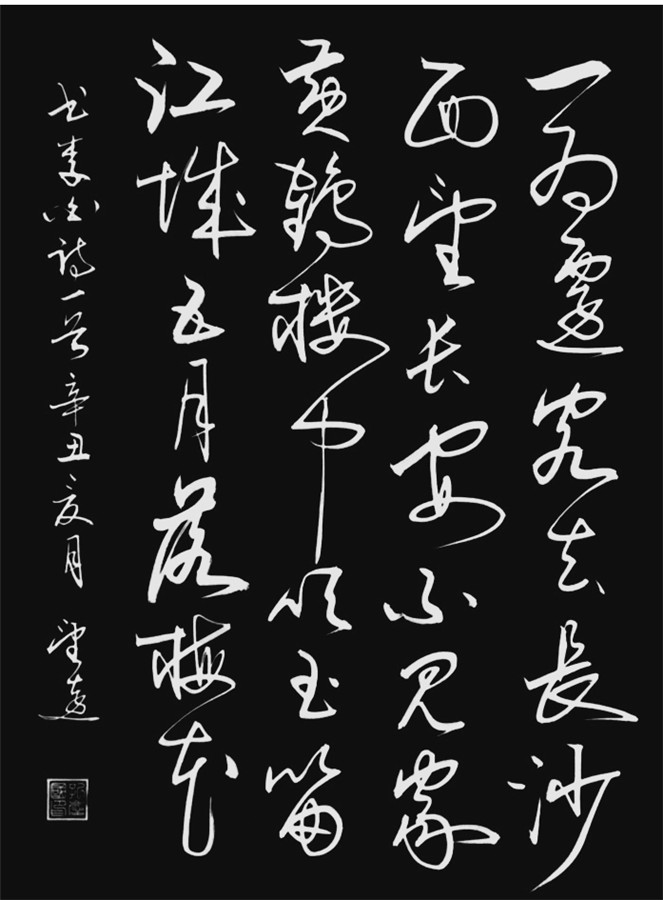 一为遷客去長沙
西望长安不见家
黄鹤楼中吹玉笛
江城五月落梅花
书李白诗一首辛丑夏月望远